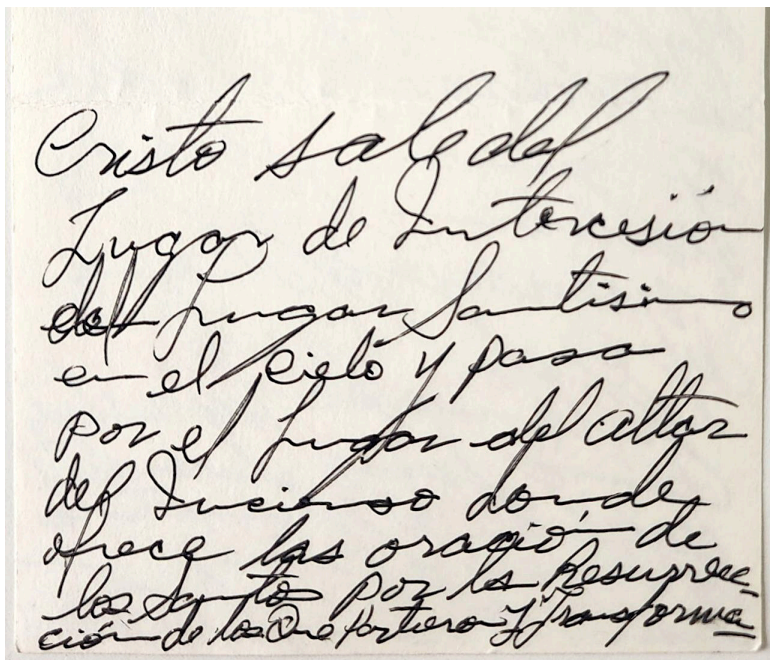 Cristo sale del
Lugar de Intercesión
del Lugar Santisimo
en el Cielo y pasa
por el Lugar del altar
del Incienso donde
ofrece las oración de
los Santos por la Resurrec-
ción de los Que Partieron y Transforma-